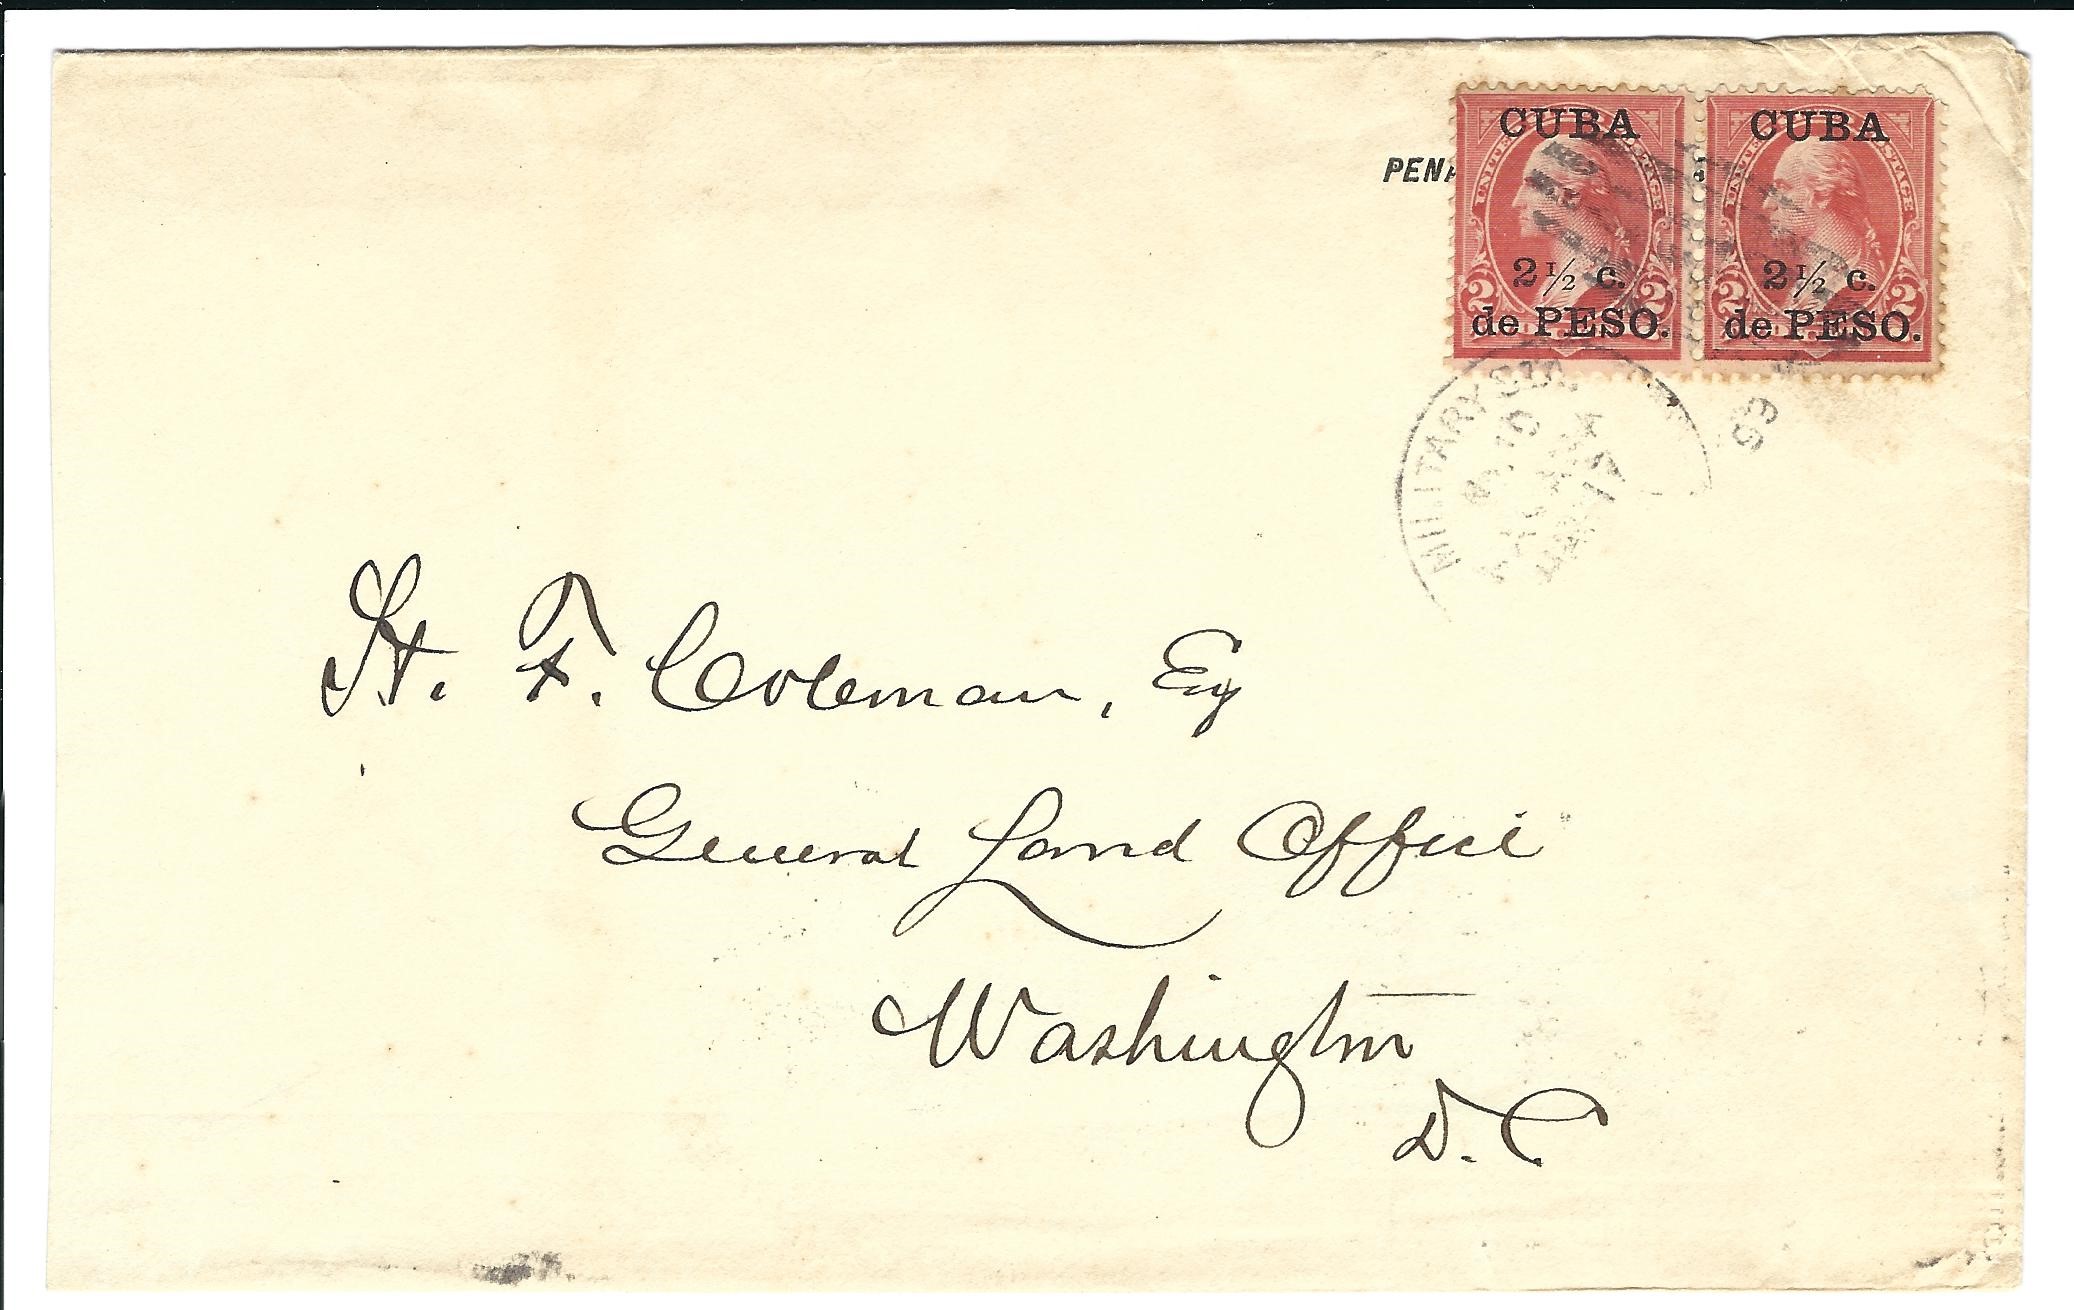 PEN
CUBA
2½ c.
de PESO.
2 2
CUBA
2½ c.
de PESO.
2 2
MILITARY STA.
H. F. Coleman, Esq
General Land Office
Washington
D.C